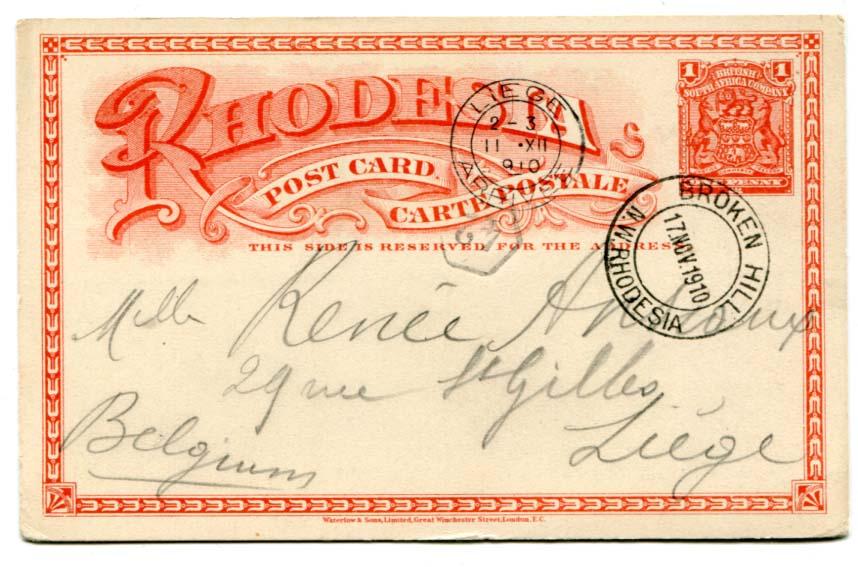 RHODESIA
POST CARD.
CARTE POSTALE
THIS SIDE IS RESERVED FOR THE ADDRESS
1 1
BRITISH
SOUTH AFRICA COMPANY
PENNY
LIEGE
2-3
11 •XII
910
BROKEN HILL
17.NOV.1910
N.W. RHODESIA
Melle Renée
29 rue St Gilles
Liége
Belgium
Waterlow & Sons, Limited, Great Winchester Street, London, E.C.